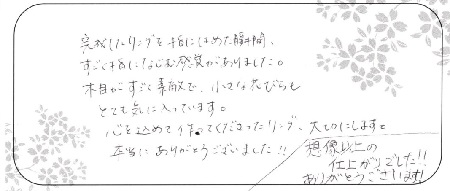 完成したリングを指にはめた瞬間、
すごく指になじむ感覚がありました。
木目がすごく素敵で、小さな花びらも
とても気に入っています。
心を込めて作ってくださったリング、大切にします。
本当にありがとうございました!!
想像以上の
仕上がりでした!!
ありがとうございます!